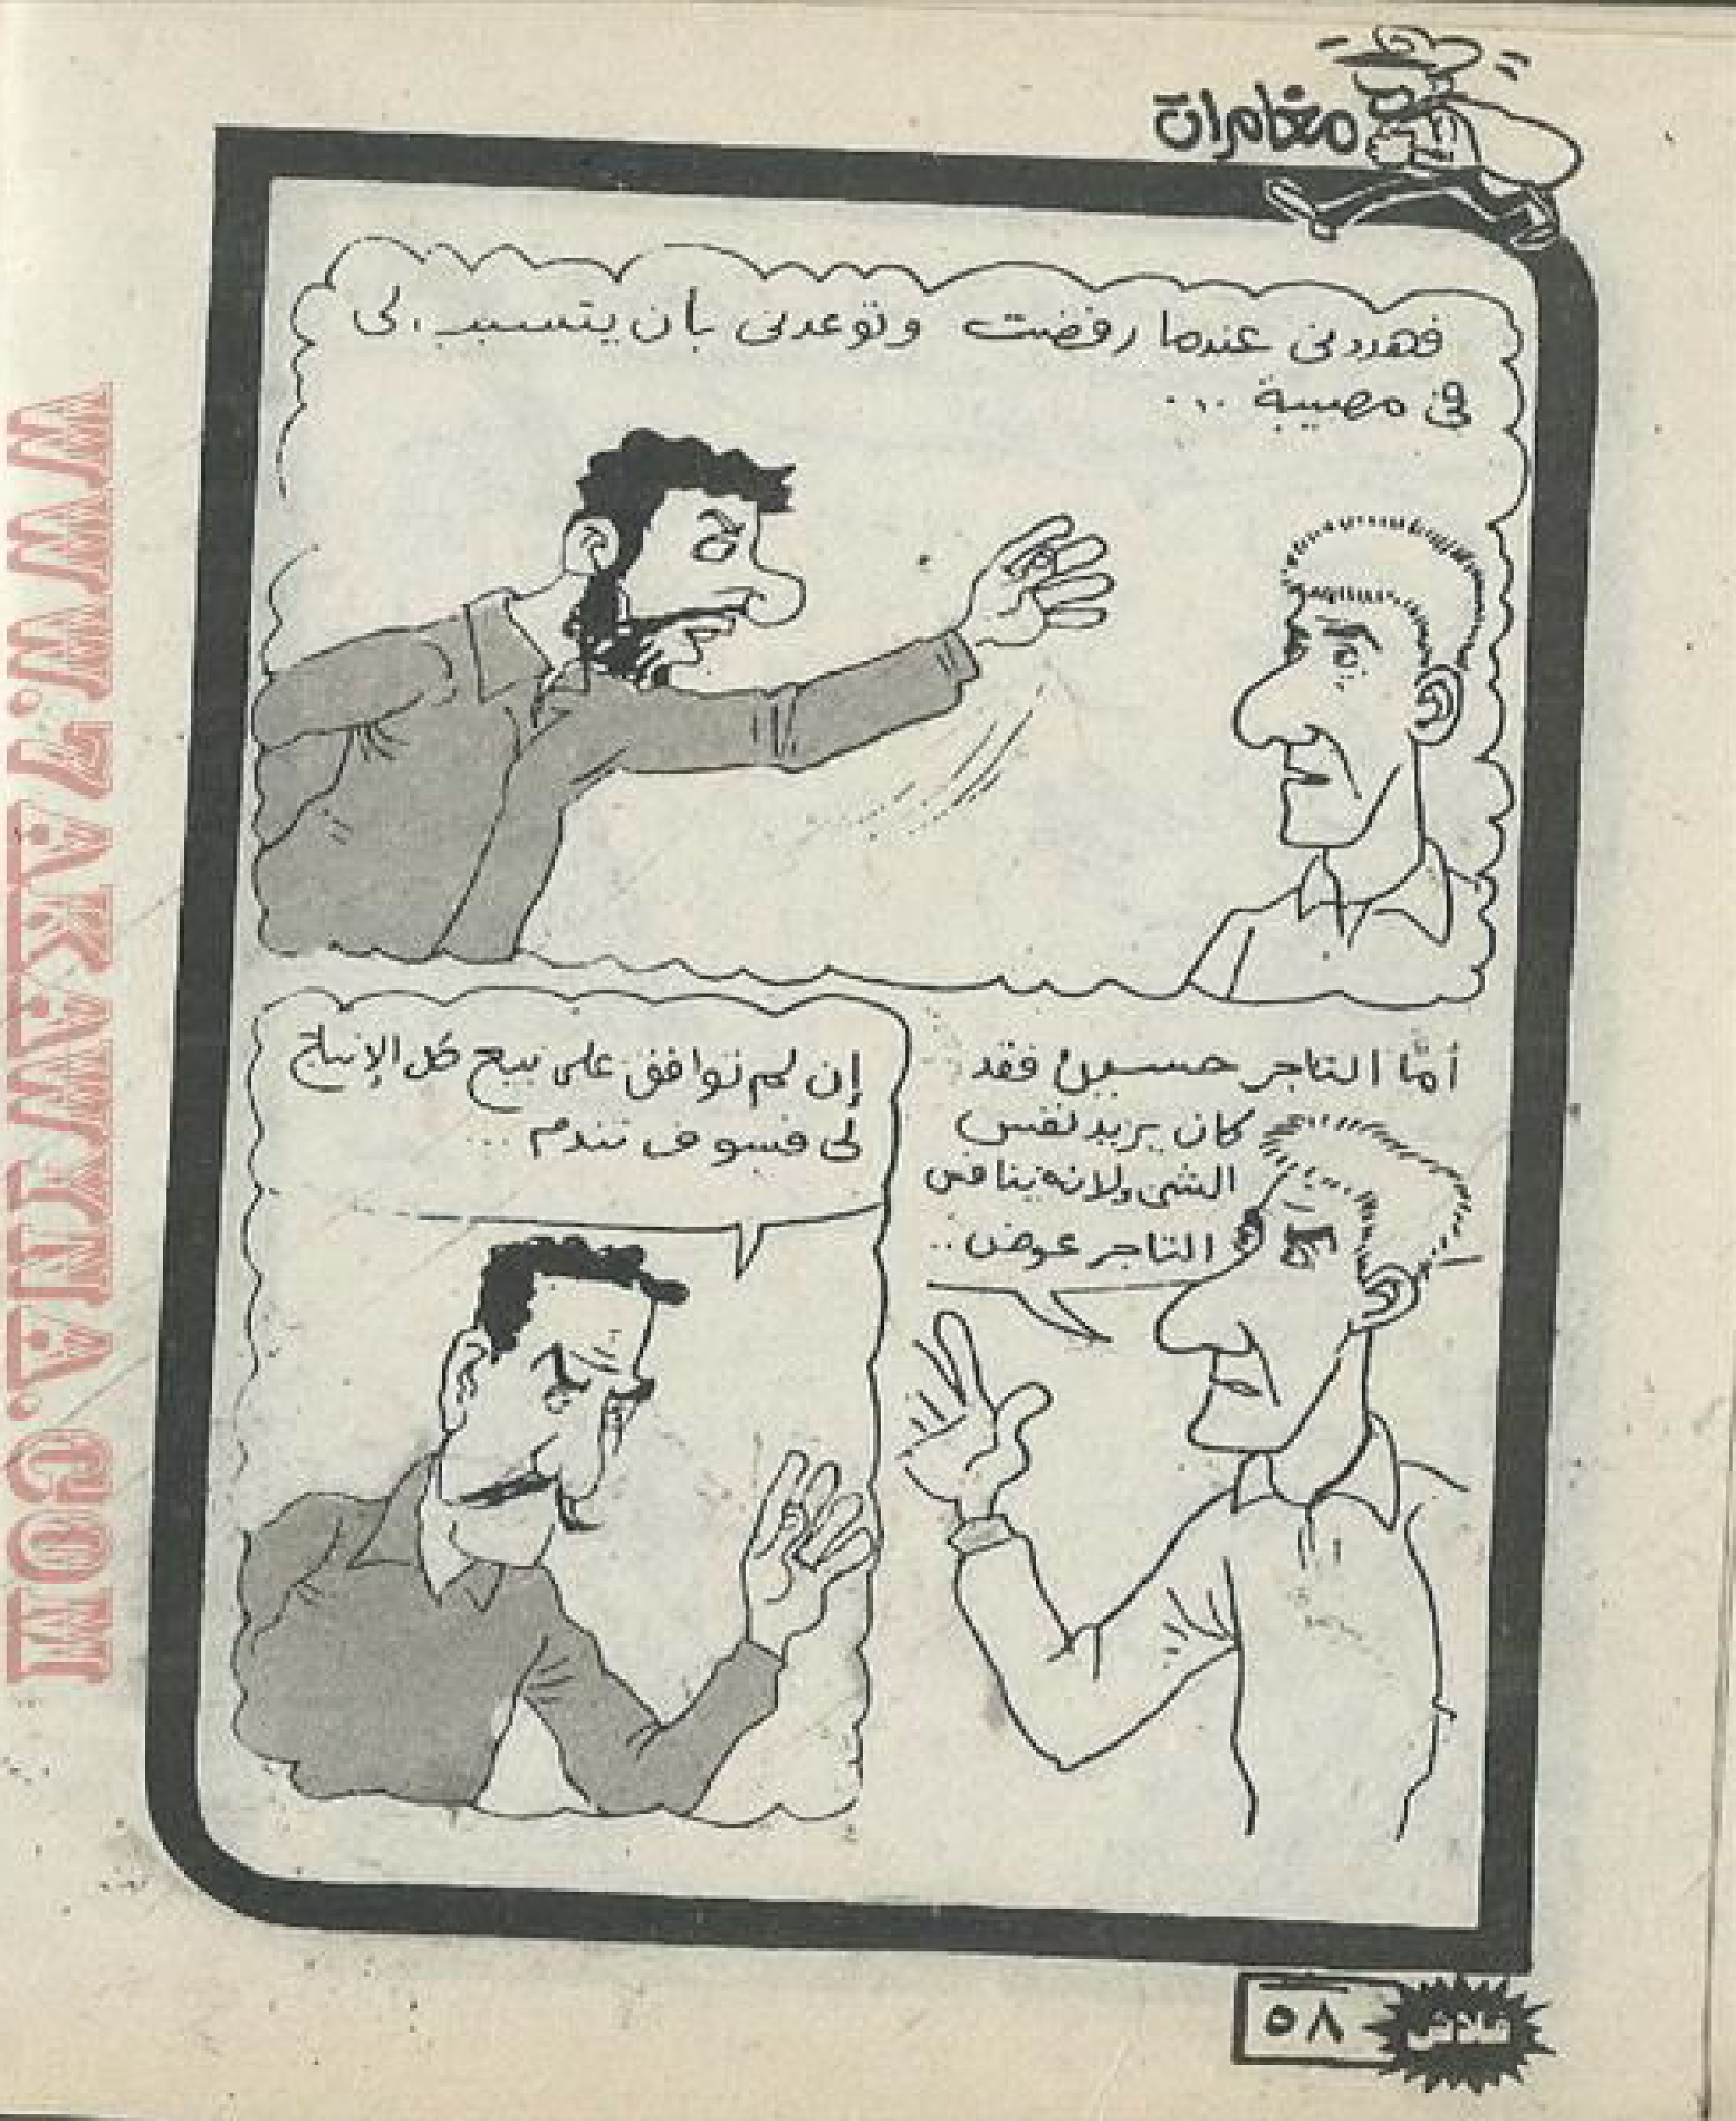 مغامرات
فهددنى عندما رفضت وتوعدنى بأن يتسبب لى
فى مصيبة ...
أمّا التاجر حسين فقد
كان يريد نفس
الشىء لانه ينافس
التاجر عوض..
إن لم توافق على بيع كل الإنتاج
لى فسوف تندم ...
فلاش
٥٨
WWW.7AKAWATNA.COM